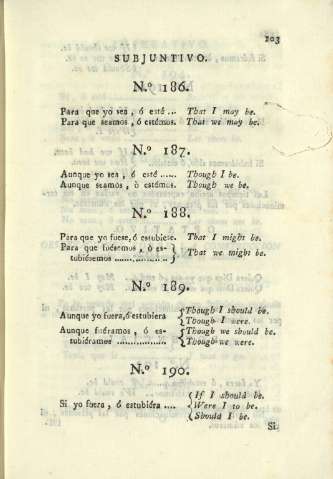 103
SUBJUNTIVO.
N.º 186.
Para que yo sea, ó esté ... That I may be.
Para que seamos, ó estémos. That we may be.
N.º 187.
Aunque yo sea, ó esté ...... Though I be.
Aunque seamos, ó estémos. Though we be.
N.º 188.
Para que yo fuese, ó estubiese. That I might be.
Para que fuésemos, ó es-
tubiésemos ................ } That we might be.
N.º 189.
Aunque yo fuera, ó estubiera { Though I should be.
Though I were.
Aunque fuéramos, ó es- { Though we should be.
tubiéramos ................ Though we were.
N.º 190.
{ If I should be.
Si yo fuera, ó estubiéra .... Were I to be.
Should I be.
Si